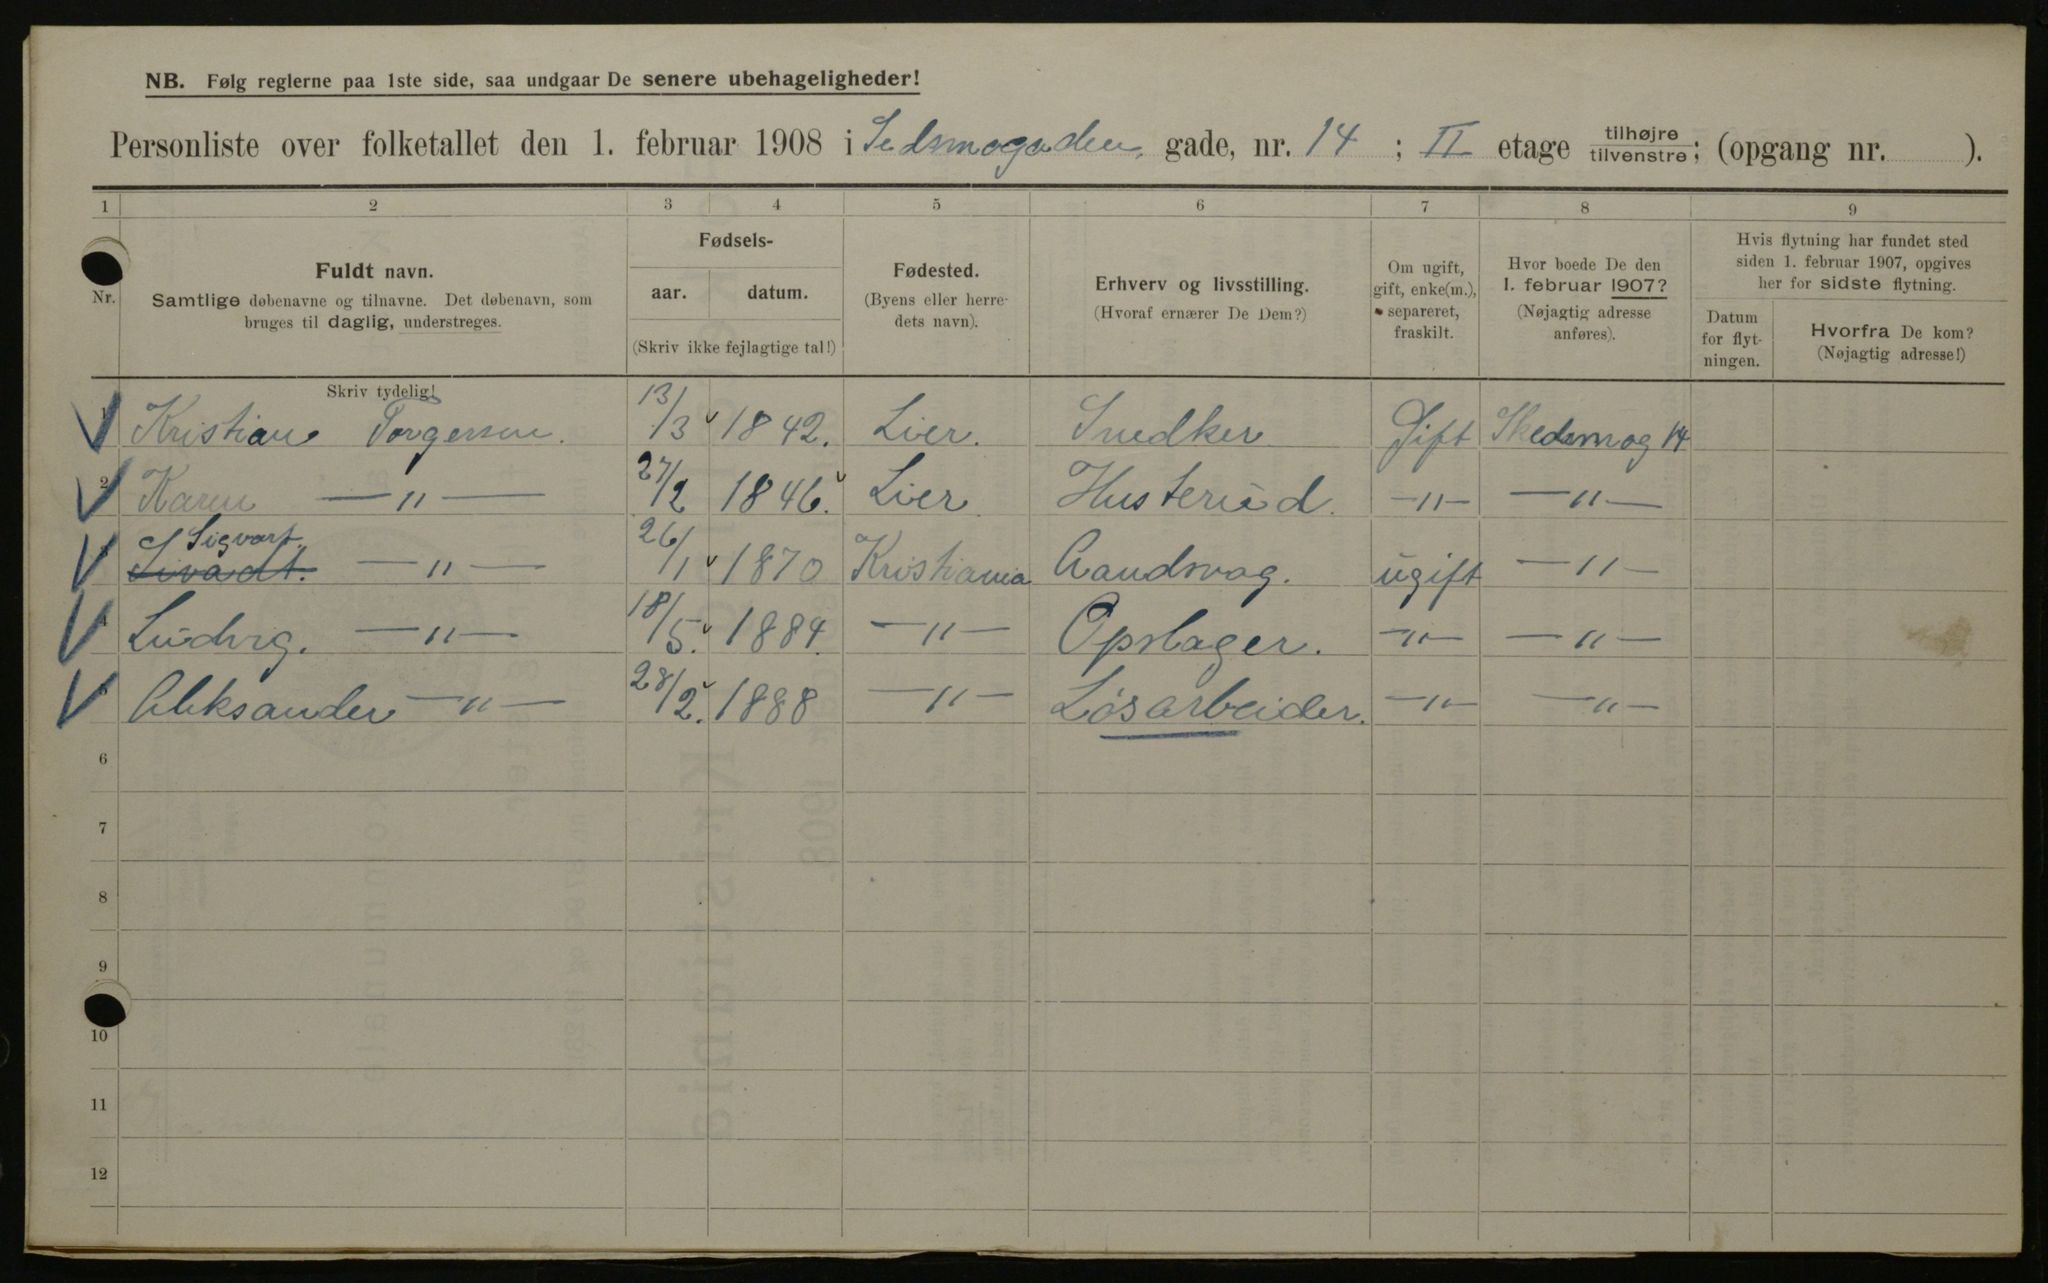 NB. Følg reglerne paa 1ste side, saa undgaar De senere ubehageligheder!
Personliste over folketallet den 1. februar 1908 i Sedsmogaden, gade, nr. 14 ; II etage tilhøjre/tilvenstre; (opgang nr. ).
1 2 3 4 5 6 7 8 9
Nr.
Fuldt navn.
Samtlige døbenavne og tilnavne. Det døbenavn, som
bruges til daglig, understreges.
Skriv tydelig!
Fødsels-
aar. datum.
(Skriv ikke fejlagtige tal!)
Fødested.
(Byens eller herre-
dets navn).
Erhverv og livsstilling.
(Hvoraf ernærer De Dem?)
Om ugift,
gift, enke(m.),
separeret,
fraskilt.
Hvor boede De den
1. februar 1907?
(Nøjagtig adresse
anføres).
Hvis flytning har fundet sted
siden 1. februar 1907, opgives
her for sidste flytning.
Datum
for flyt-
ningen.
Hvorfra De kom?
(Nøjagtig adresse!)
1 Kristian Torgersen. 13/3 1842. Lier. Snedker Gift Skedsmog 14
2 Karen —"— 27/2 1846. Lier. Husterud. —"— —"—
Sigvart.
—"— 26/1 1870 Kristiania ugift —"—
4 Ludvig. —"— 18/5. 1884. —"— Opslager. —"— —"—
5 Aleksander —"— 28/2. 1888 —"— Løsarbeider. —"— —"—
6
7
8
9
10
11
12